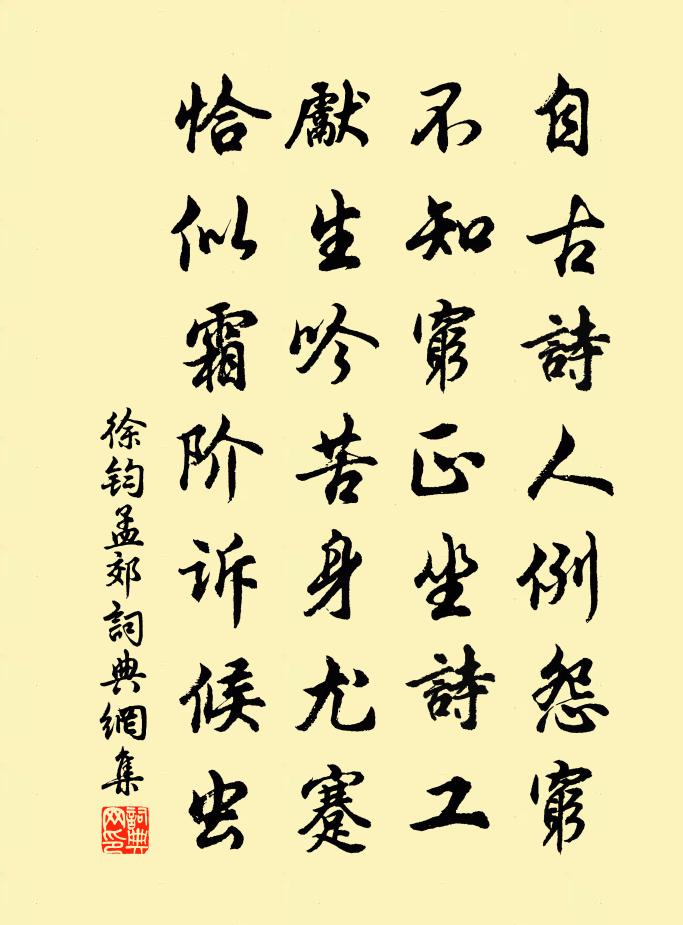 自古詩人例怨窮
不知窮正坐詩工
獻生吟苦身尤蹇
恰似霜阶诉候虫
徐钧孟郊詞典網集
詞典网印